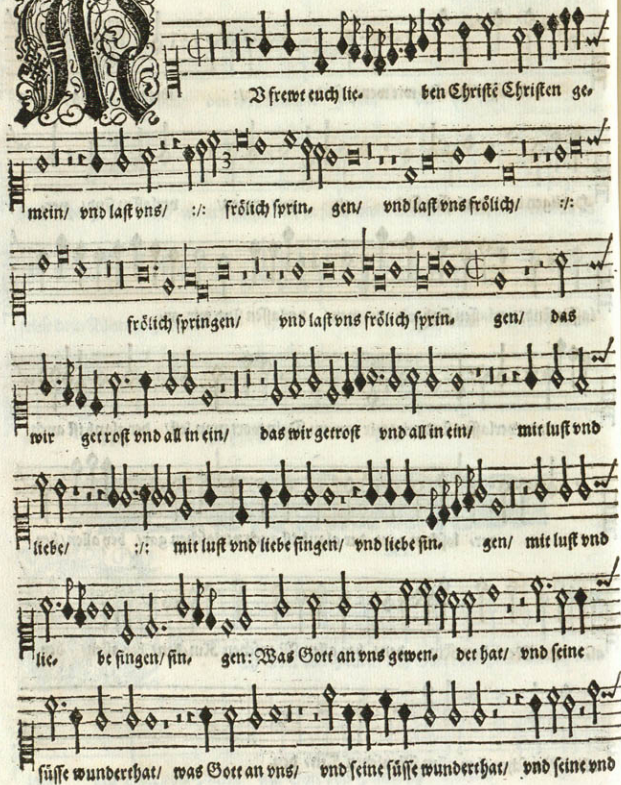 NV frewt euch lie- ben Christē Christen ge-
3
mein/ vnd last vns/ :/: frölich sprin- gen/ vnd last vns frölich/ :/:
frölich springen/ vnd last vns frölich sprin- gen/ das
wir getrost vnd all in ein/ das wir getrost vnd all in ein/ mit lust vnd
liebe/ :/: mit lust vnd liebe singen/ vnd liebe sin- gen/ mit lust vnd
lie- be singen/ sin- gen: Was Gott an vns gewen- det hat/ vnd seine
süsse wunderthat/ was Gott an vns/ vnd seine süsse wunderthat/ vnd seine vnd